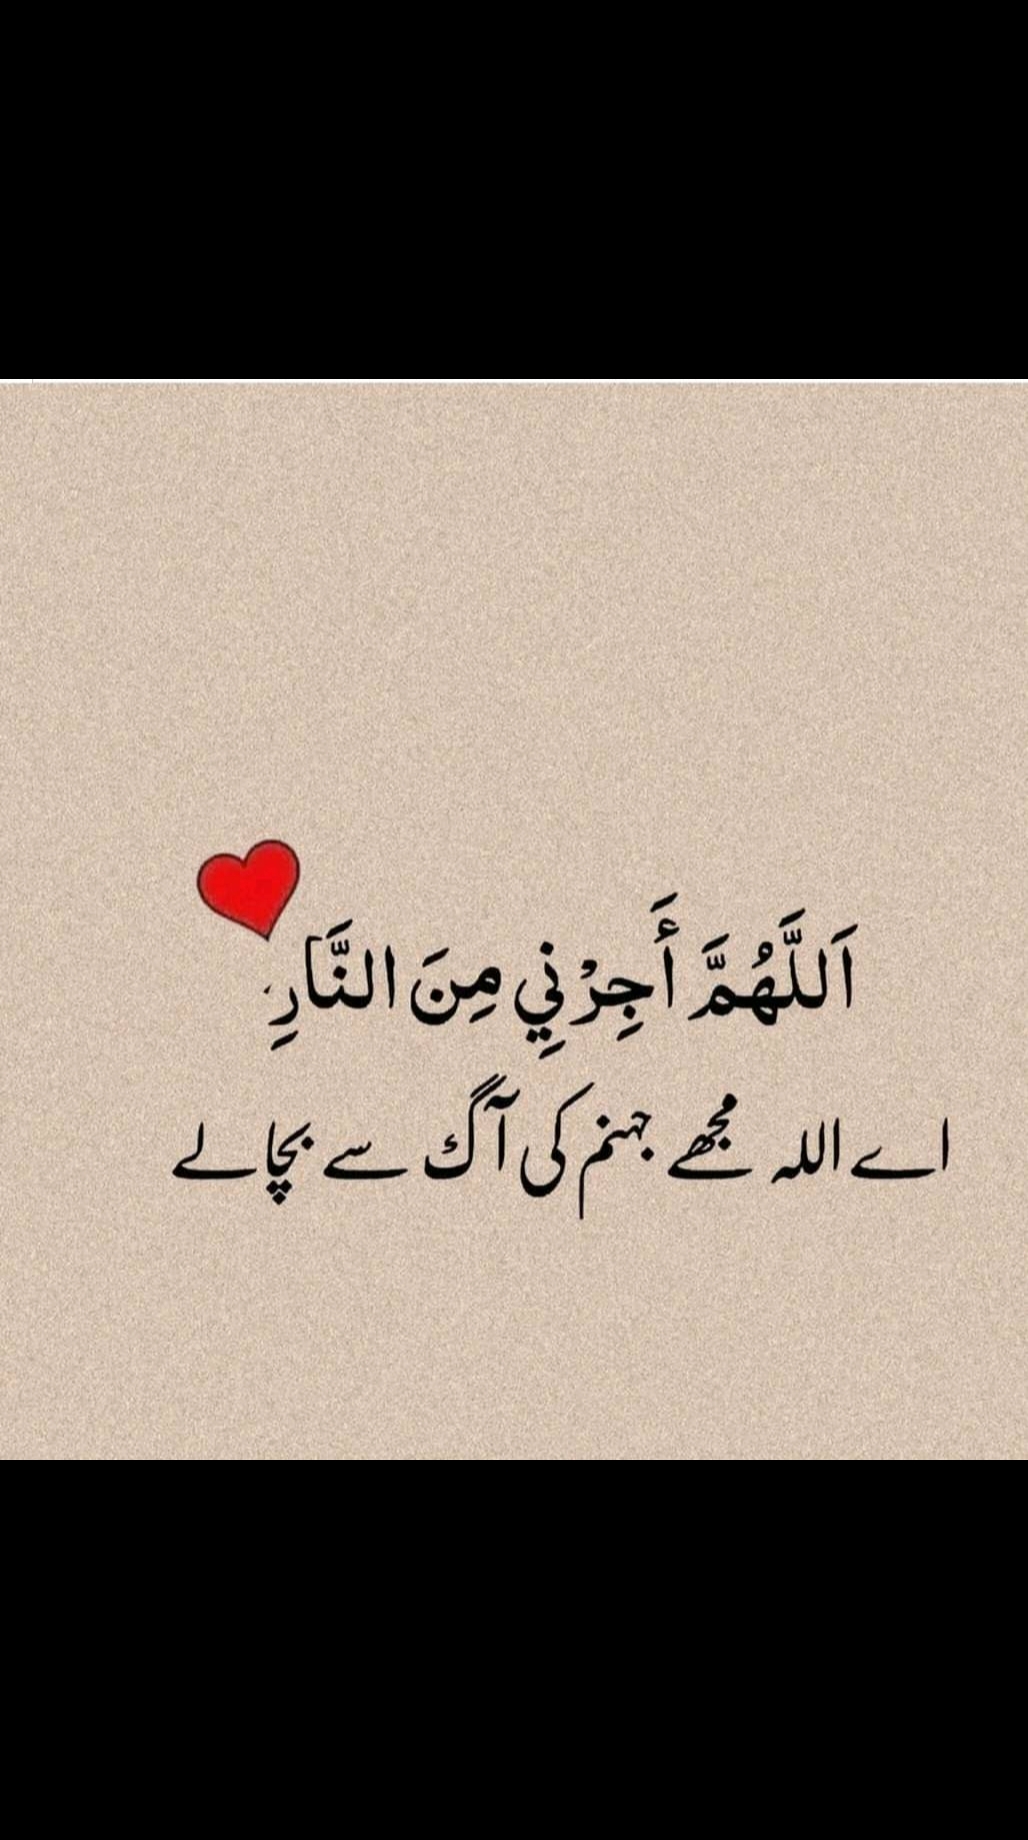 اَللَّهُمَّ أَجِرْنِي مِنَ النَّارِ
اے اللہ مجھے جہنم کی آگ سے بچا لے